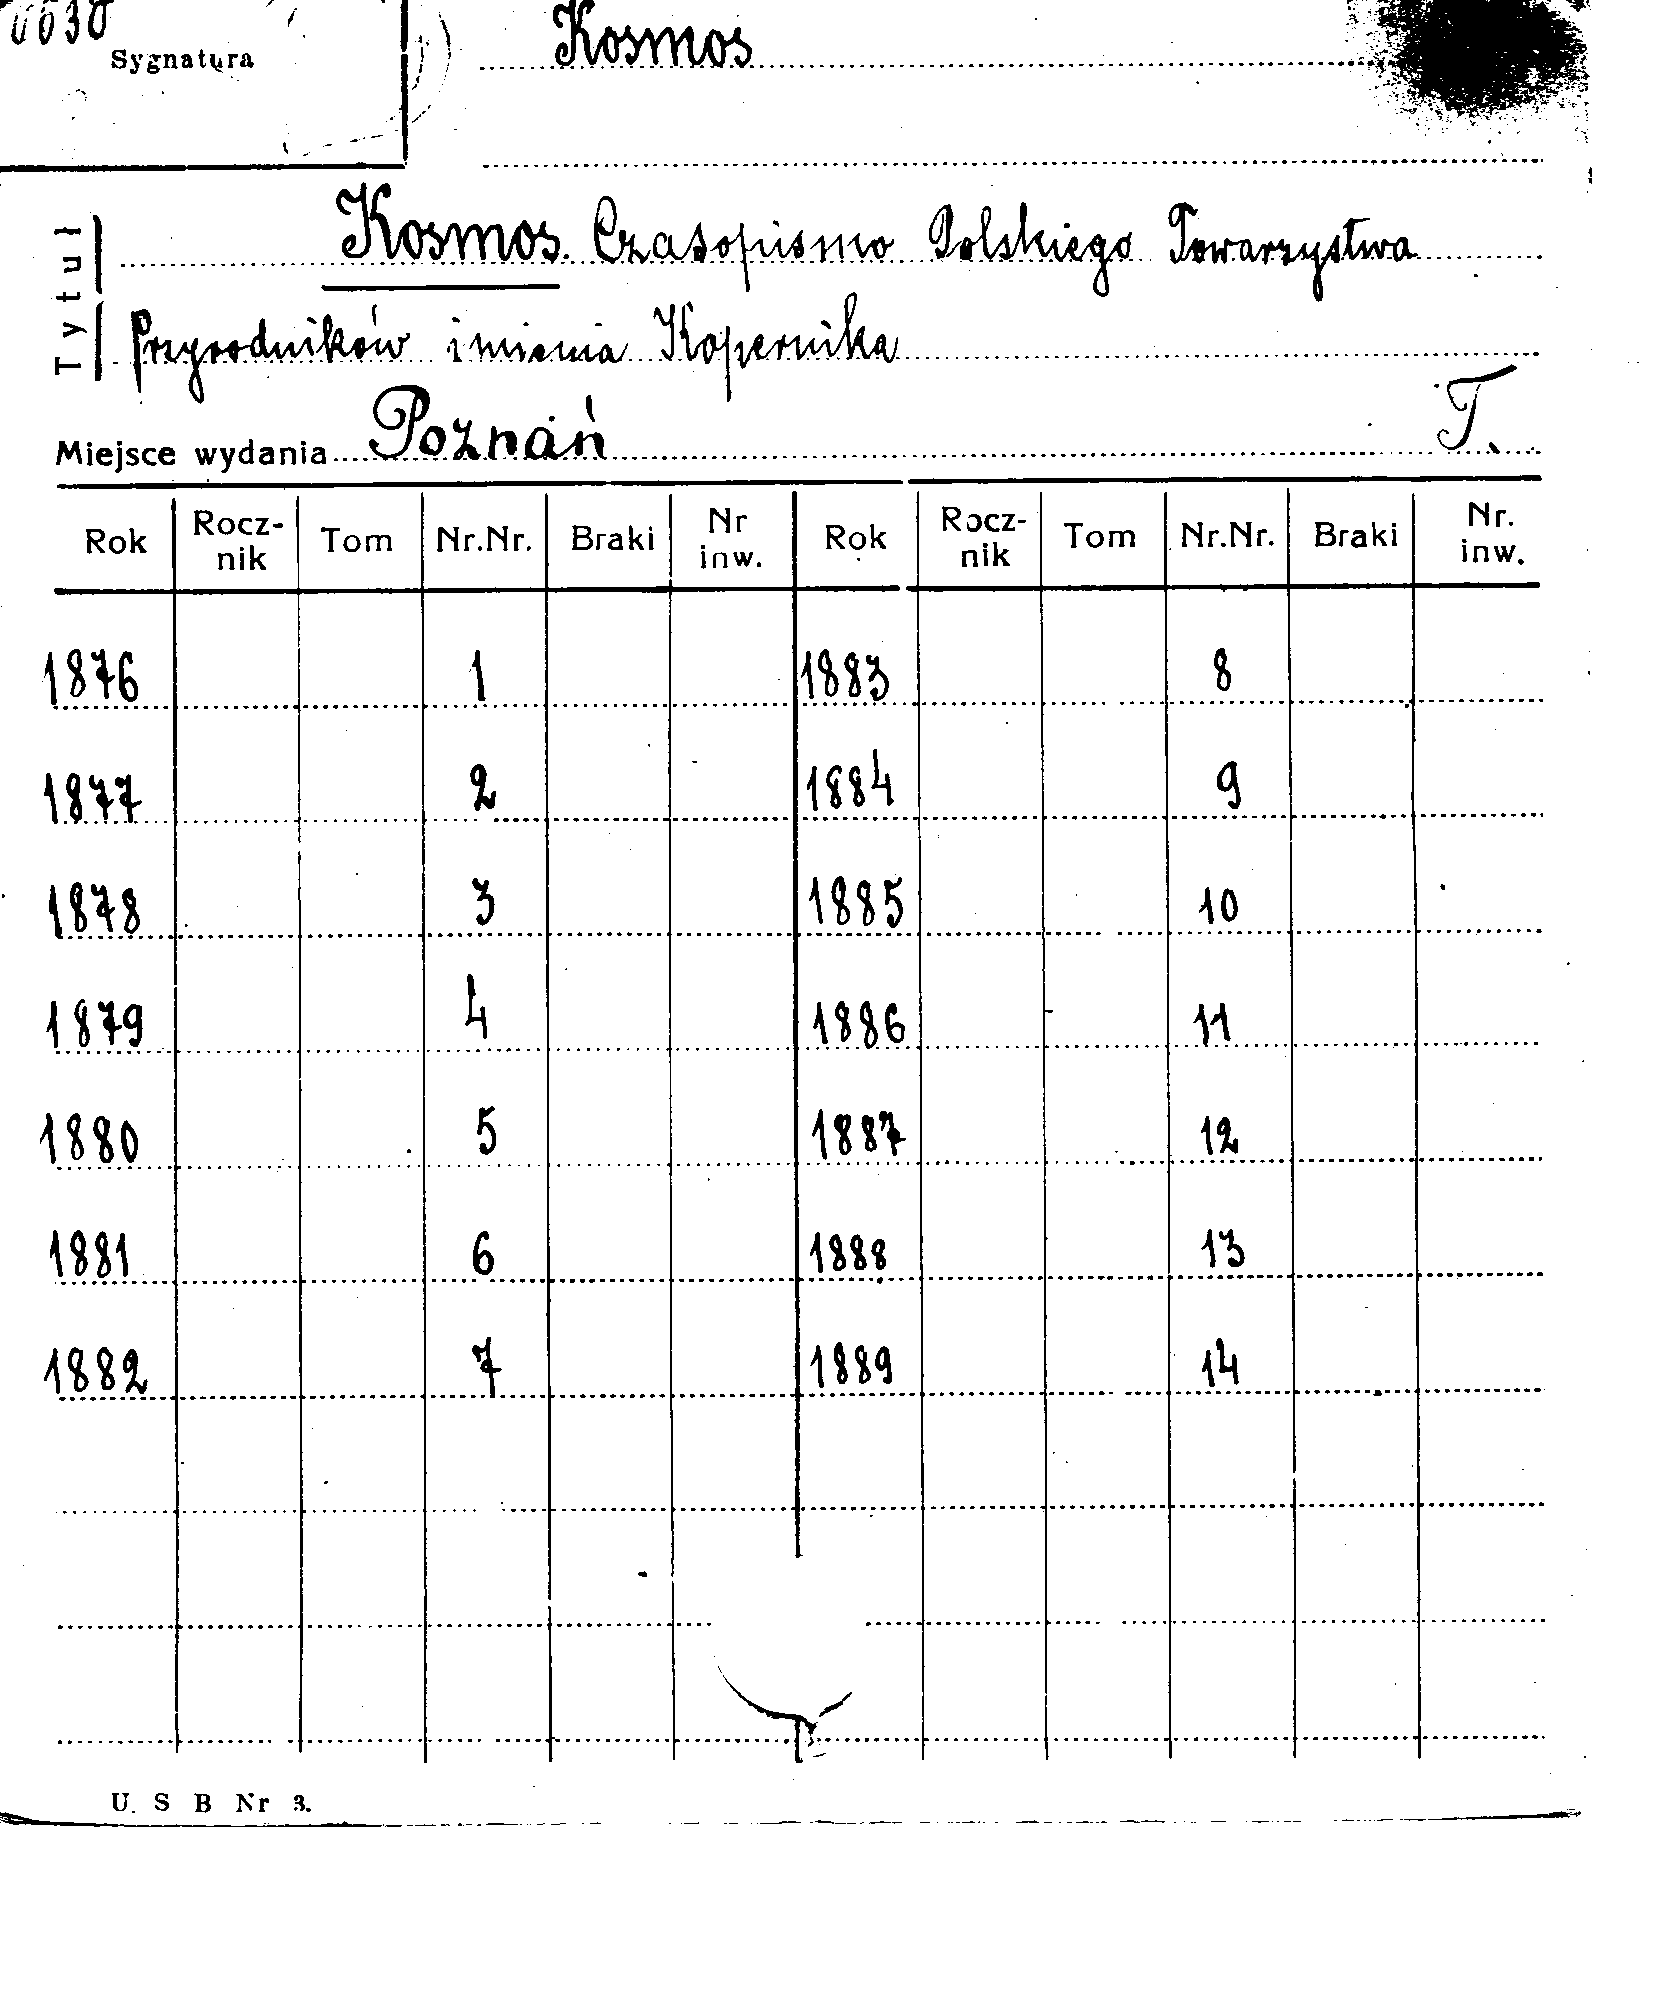 0630
Sygnatura
Kosmos
Tytuł
Kosmos. Czasopismo Polskiego Towarzystwa
Przyrodników imienia Kopernika
Miejsce wydania Poznań T.
Rok Rocz-nik Tom Nr.Nr. Braki Nr inw. Rok Rocz-nik Tom Nr.Nr. Braki Nr. inw.
1876 1 1883 8
1877 2 1884 9
1878 3 1885 10
1879 4 1886 11
1880 5 1887 12
1881 6 1888 13
1882 7 1889 14
U. S B Nr 3.